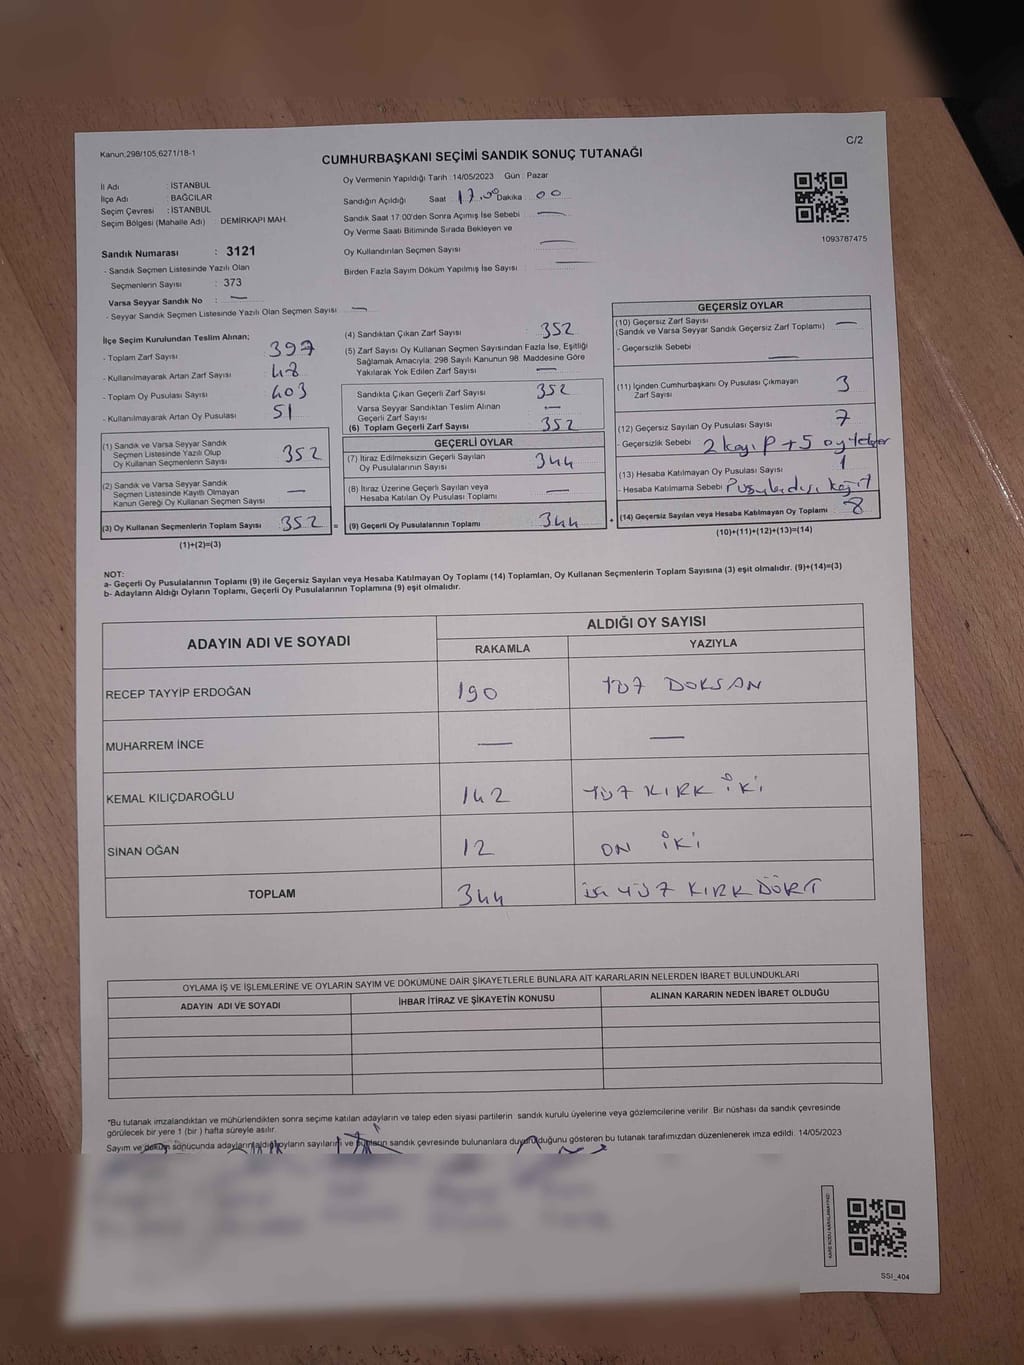 Kanun,298/105;6271/18-1
C/2
CUMHURBAŞKANI SEÇİMİ SANDIK SONUÇ TUTANAĞI
İl Adı : İSTANBUL
İlçe Adı : BAĞCILAR
Seçim Çevresi : İSTANBUL
Seçim Bölgesi (Mahalle Adı) DEMİRKAPI MAH.
Oy Vermenin Yapıldığı Tarih :14/05/2023 Gün : Pazar
Sandığın Açıldığı Saat : 17.00 Dakika : 00
Sandık Saat 17:00'den Sonra Açımış İse Sebebi : —
Oy Verme Saati Bitiminde Sırada Bekleyen ve
Oy Kullandırılan Seçmen Sayısı : —
Birden Fazla Sayım Döküm Yapılmış İse Sayısı : —
1093767475
Sandık Numarası : 3121
- Sandık Seçmen Listesinde Yazılı Olan
Seçmenlerin Sayısı : 373
Varsa Seyyar Sandık No : —
- Seyyar Sandık Seçmen Listesinde Yazılı Olan Seçmen Sayısı : —
İlçe Seçim Kurulundan Teslim Alınan;
- Toplam Zarf Sayısı : 397
- Kullanılmayarak Artan Zarf Sayısı : 48
- Toplam Oy Pusulası Sayısı : 403
- Kullanılmayarak Artan Oy Pusulası : 51
(1) Sandık ve Varsa Seyyar Sandık
Seçmen Listesinde Yazılı Olup
Oy Kullanan Seçmenlerin Sayısı : 352
(2) Sandık ve Varsa Seyyar Sandık
Seçmen Listesinde Kayıtlı Olmayan
Kanun Gereği Oy Kullanan Seçmen Sayısı : —
(3) Oy Kullanan Seçmenlerin Toplam Sayısı : 352 =
(1)+(2)=(3)
(4) Sandıktan Çıkan Zarf Sayısı : 352
(5) Zarf Sayısı Oy Kullanan Seçmen Sayısından Fazla İse, Eşitliği
Sağlamak Amacıyla; 298 Sayılı Kanunun 98. Maddesine Göre
Yakılarak Yok Edilen Zarf Sayısı : —
Sandıkta Çıkan Geçerli Zarf Sayısı : 352
Varsa Seyyar Sandıktan Teslim Alınan
Geçerli Zarf Sayısı : —
(6) Toplam Geçerli Zarf Sayısı : 352
GEÇERLİ OYLAR
(7) İtiraz Edilmeksizin Geçerli Sayılan
Oy Pusulalarının Sayısı : 344
(8) İtiraz Üzerine Geçerli Sayılan veya
Hesaba Katılan Oy Pusulası Toplamı : —
(9) Geçerli Oy Pusulalarının Toplamı : 344 +
GEÇERSİZ OYLAR
(10) Geçersiz Zarf Sayısı
(Sandık ve Varsa Seyyar Sandık Geçersiz Zarf Toplamı) : —
- Geçersizlik Sebebi : —
(11) İçinden Cumhurbaşkanı Oy Pusulası Çıkmayan
Zarf Sayısı : 3
(12) Geçersiz Sayılan Oy Pusulası Sayısı : 7
- Geçersizlik Sebebi : 2 kayıp + 5 oy
(13) Hesaba Katılmayan Oy Pusulası Sayısı : 1
- Hesaba Katılmama Sebebi :
(14) Geçersiz Sayılan veya Hesaba Katılmayan Oy Toplamı : 8
(10)+(11)+(12)+(13)=(14)
NOT:
a- Geçerli Oy Pusulalarının Toplamı (9) ile Geçersiz Sayılan veya Hesaba Katılmayan Oy Toplamı (14) Toplamları, Oy Kullanan Seçmenlerin Toplam Sayısına (3) eşit olmalıdır. (9)+(14)=(3)
b- Adayların Aldığı Oyların Toplamı, Geçerli Oy Pusulalarının Toplamına (9) eşit olmalıdır.
ADAYIN ADI VE SOYADI
ALDIĞI OY SAYISI
RAKAMLA YAZIYLA
RECEP TAYYİP ERDOĞAN 190 YÜZ DOKSAN
MUHARREM İNCE — —
KEMAL KILIÇDAROĞLU 142 YÜZ KIRK İKİ
SİNAN OĞAN 12 ON İKİ
TOPLAM 344 üç YÜZ KIRK DÖRT
OYLAMA İŞ VE İŞLEMLERİNE VE OYLARIN SAYIM VE DÖKÜMÜNE DAİR ŞİKAYETLERLE BUNLARA AİT KARARLARIN NELERDEN İBARET BULUNDUKLARI
ADAYIN ADI VE SOYADI İHBAR İTİRAZ VE ŞİKAYETİN KONUSU ALINAN KARARIN NEDEN İBARET OLDUĞU
*Bu tutanak imzalandıktan ve mühürlendikten sonra seçime katılan adayların ve talep eden siyasi partilerin sandık kurulu üyelerine veya gözlemcilerine verilir. Bir nüshası da sandık çevresinde
görülecek bir yere 1 (bir ) hafta süreyle asılır.
Sayım ve döküm sonucunda adayların aldığı oyların sayılarını ve bunların sandık çevresinde bulunanlara duyurulduğunu gösteren bu tutanak tarafımızdan düzenlenerek imza edildi. 14/05/2023
SSI_404